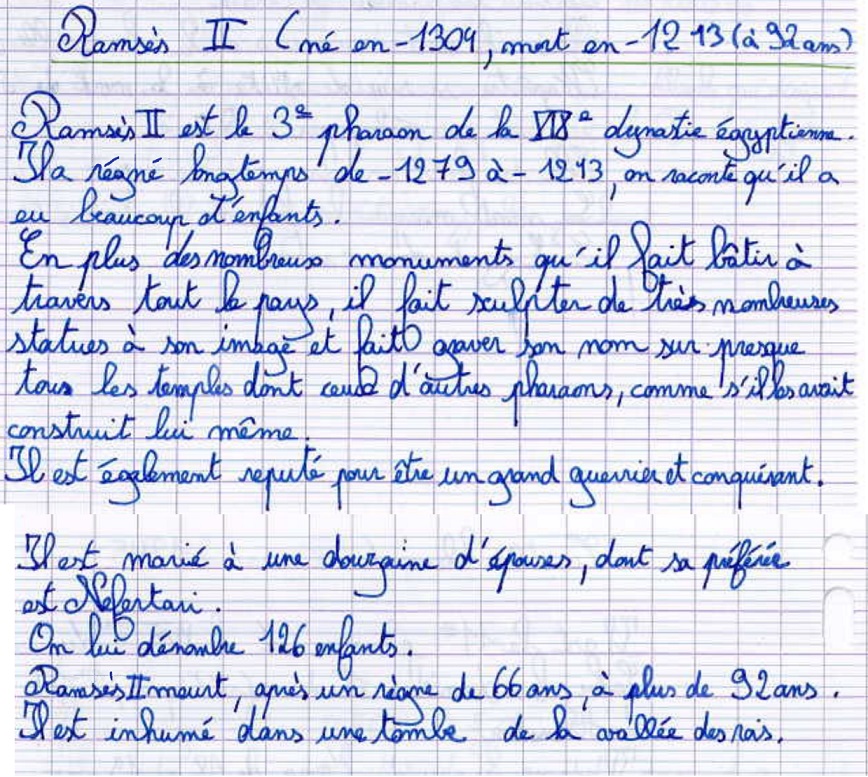 Ramsès II (né en -1304, mort en -1213 (à 92 ans)
Ramsès II est le 3e pharaon de la XIXe dynastie égyptienne.
Il a régné longtemps de -1279 à -1213, on raconte qu'il a
eu beaucoup d'enfants.
En plus des nombreux monuments qu'il fait bâtir à
travers tout le pays, il fait sculpter de très nombreuses
statues à son image et fait graver son nom sur presque
tous les temples dont ceux d'autres pharaons, comme s'il les avait
construit lui même.
Il est également reputé pour être un grand guerrier et conquérant.
Il est marié à une douzaine d'épouses, dont sa préférée
est Nefertari.
On lui dénombre 126 enfants.
Ramsès II meurt, après un règne de 66 ans, à plus de 92 ans.
Il est inhumé dans une tombe de la vallée des rois.